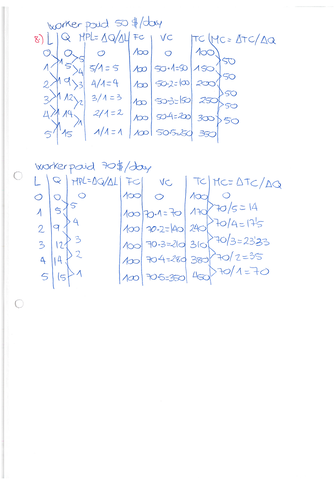 worker paid 50 $/day
8) L Q MPL=ΔQ/ΔL FC VC TC MC=ΔTC/ΔQ
0 0 0 100 0 100
1 5 5/1=5 100 50·1=50 150 50
2 9 4/1=4 100 50·2=100 200 50
3 12 3/1=3 100 50·3=150 250 50
4 14 2/1=2 100 50·4=200 300 50
5 15 1/1=1 100 50·5=250 350 50
worker paid 70$/day
L Q MPL=ΔQ/ΔL FC VC TC MC=ΔTC/ΔQ
0 0 0 100 0 100 0
1 5 5 100 70·1=70 170 70/5=14
2 9 4 100 70·2=140 240 70/4=17'5
3 12 3 100 70·3=210 310 70/3=23'33
4 14 2 100 70·4=280 380 70/2=35
5 15 1 100 70·5=350 450 70/1=70